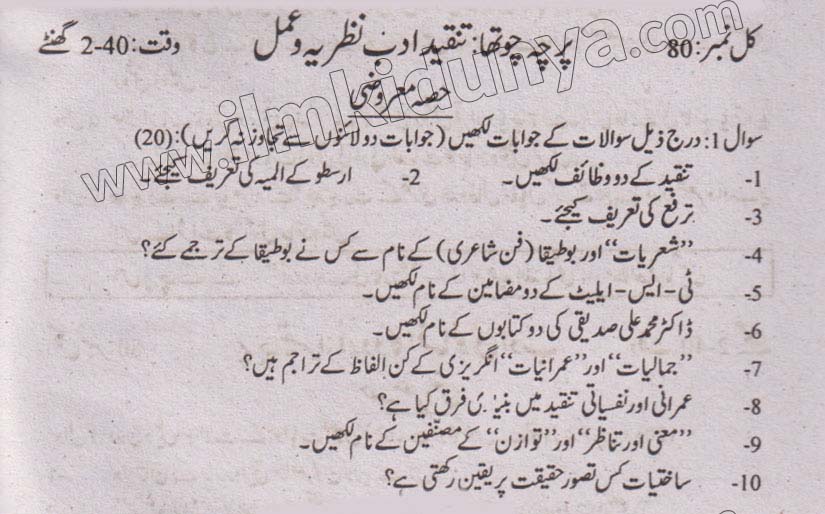 کل نمبر: 80 پرچہ چوتھا: تنقید ادب نظریہ و عمل وقت: 40-2 گھنٹے
حصہ معروضی
سوال 1: درج ذیل سوالات کے جوابات لکھیں (جوابات دو لائنوں سے تجاوز نہ کریں): (20)
1- تنقید کے دو وظائف لکھیں۔ 2- ارسطو کے المیہ کی تعریف کیجئے
3- ترفع کی تعریف کیجئے۔
4- ”شعریات“ اور بوطیقا (فن شاعری) کے نام سے کس نے بوطیقا کے ترجمے کئے؟
5- ٹی-ایس-ایلیٹ کے دو مضامین کے نام لکھیں۔
6- ڈاکٹر محمد علی صدیقی کی دو کتابوں کے نام لکھیں۔
7- ”جمالیات“ اور ”عمرانیات“ انگریزی کے کن الفاظ کے تراجم ہیں؟
8- عمرانی اور نفسیاتی تنقید میں بنیادی فرق کیا ہے؟
9- ”معنی اور تناظر“ اور ”توازن“ کے مصنفین کے نام لکھیں۔
10- ساختیات کس تصور حقیقت پر یقین رکھتی ہے؟
www.ilmkidunya.com